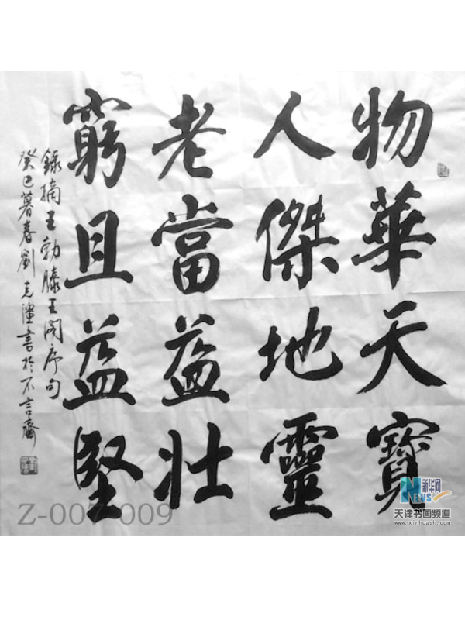 物華天寶
人傑地靈
老當益壯
窮且益堅
錄摘王勃滕王閣序句
癸巳暮春劉志書於不言齋
Z-00 009
新华网
NEWS
天津书画频道